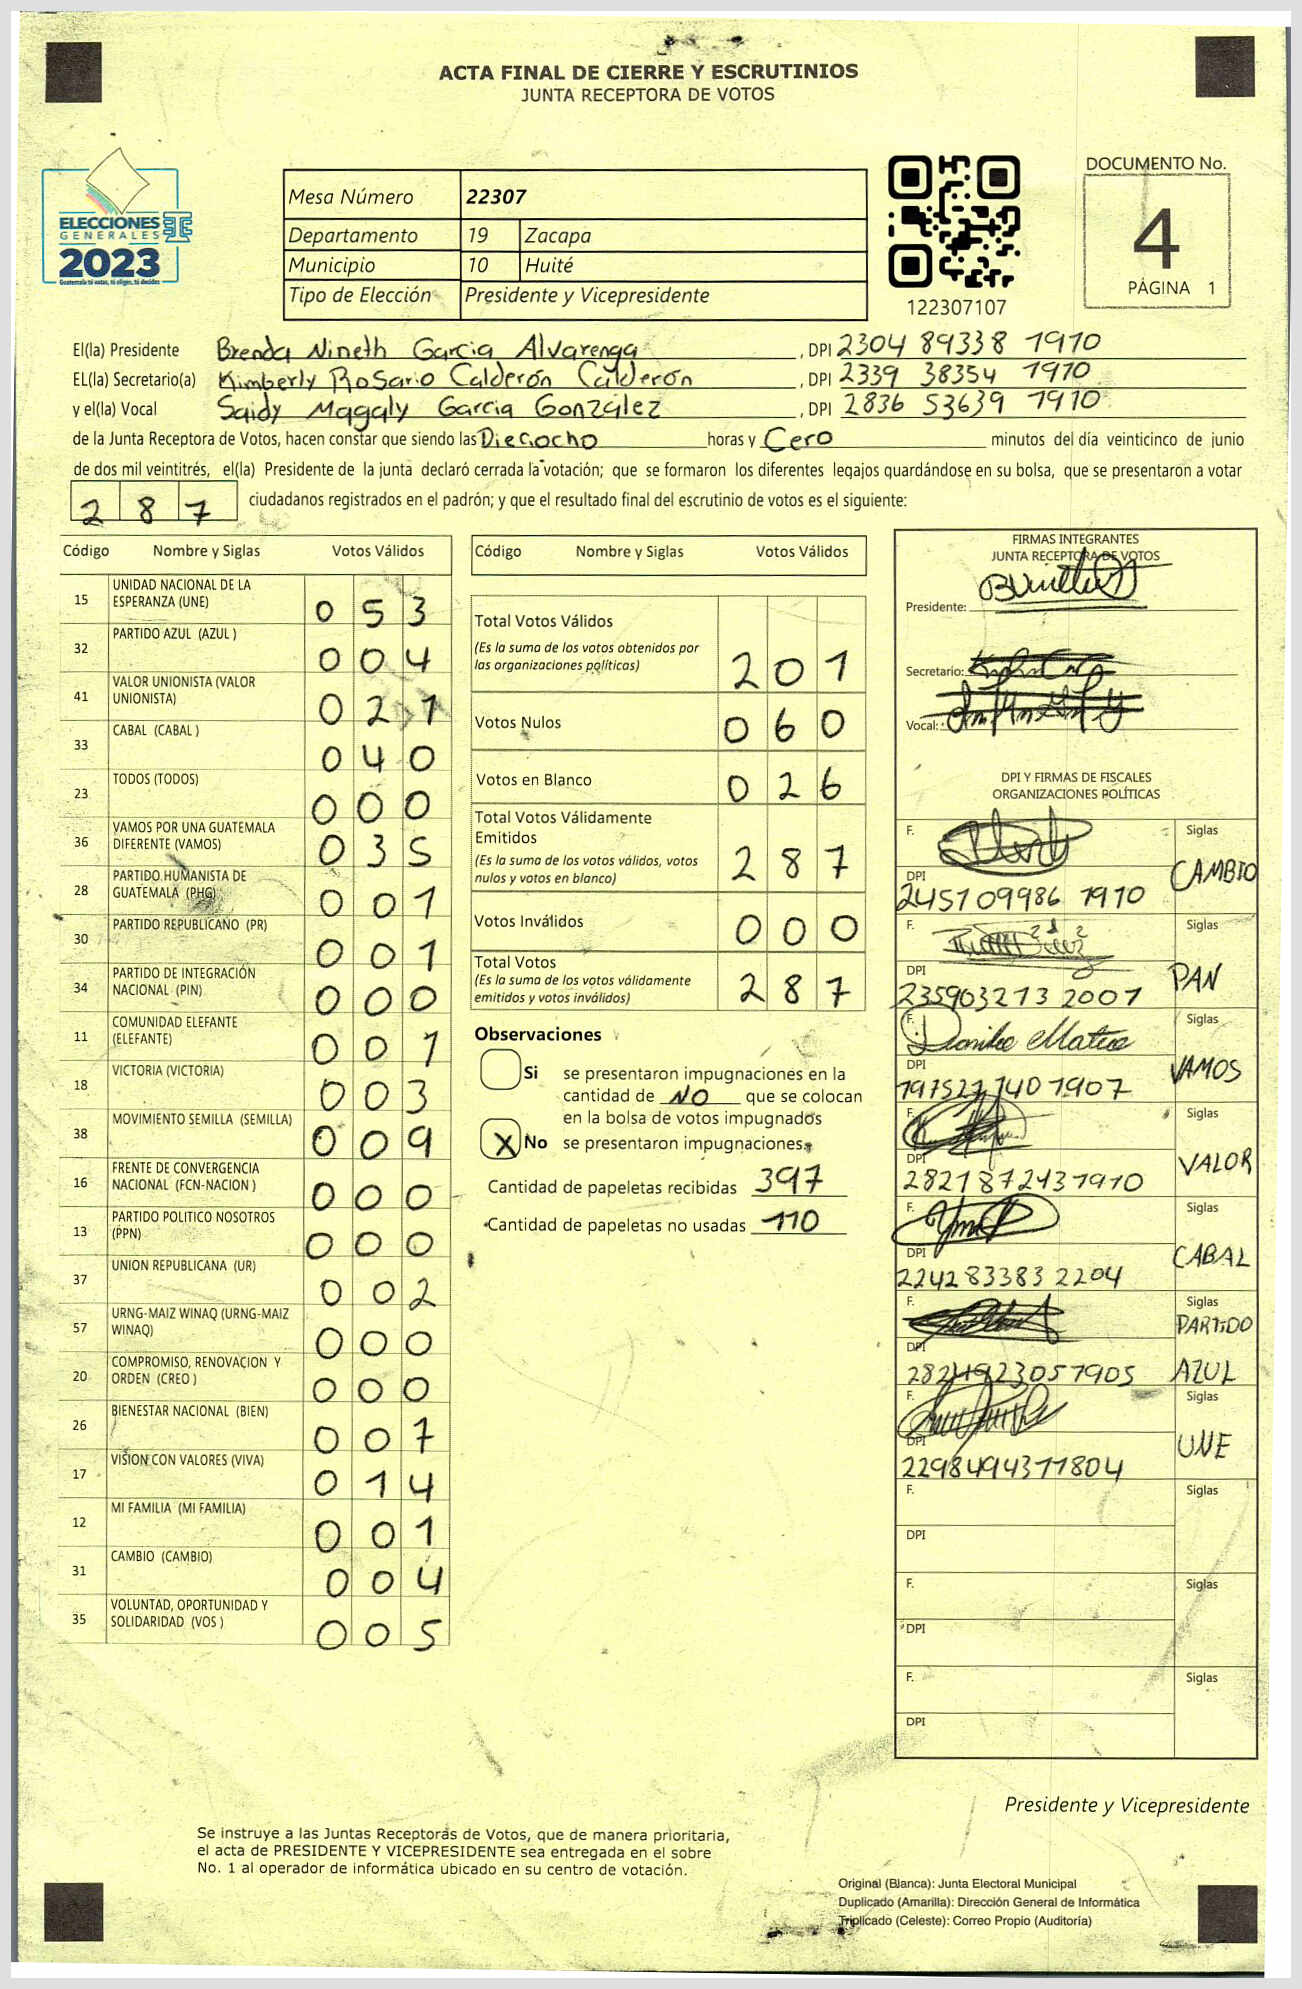 ACTA FINAL DE CIERRE Y ESCRUTINIOS
JUNTA RECEPTORA DE VOTOS
ELECCIONES
GENERALES
2023
Guatemala tú votas, tú eliges, tú decides
Mesa Número 22307
Departamento 19 Zacapa
Municipio 10 Huité
Tipo de Elección Presidente y Vicepresidente
122307107
DOCUMENTO No.
4
PÁGINA 1
El(la) Presidente Brenda Nineth Garcia Alvarenga , DPI 2304 89338 1910
EL(la) Secretario(a) Kimberly Rosario Calderón Calderón , DPI 2339 38354 1910
y el(la) Vocal Saidy Magaly Garcia González , DPI 2836 53639 1910
de la Junta Receptora de Votos, hacen constar que siendo las Dieciocho horas y Cero minutos del día veinticinco de junio
de dos mil veintitrés, el(la) Presidente de la junta declaró cerrada la votación; que se formaron los diferentes legajos quardándose en su bolsa, que se presentaron a votar
287 ciudadanos registrados en el padrón; y que el resultado final del escrutinio de votos es el siguiente:
Código Nombre y Siglas Votos Válidos
15 UNIDAD NACIONAL DE LA ESPERANZA (UNE) 053
32 PARTIDO AZUL (AZUL ) 004
41 VALOR UNIONISTA (VALOR UNIONISTA) 021
33 CABAL (CABAL ) 040
23 TODOS (TODOS) 000
36 VAMOS POR UNA GUATEMALA DIFERENTE (VAMOS) 035
28 PARTIDO HUMANISTA DE GUATEMALA (PHG) 001
30 PARTIDO REPUBLICANO (PR) 001
34 PARTIDO DE INTEGRACIÓN NACIONAL (PIN) 000
11 COMUNIDAD ELEFANTE (ELEFANTE) 001
18 VICTORIA (VICTORIA) 003
38 MOVIMIENTO SEMILLA (SEMILLA) 009
16 FRENTE DE CONVERGENCIA NACIONAL (FCN-NACION ) 000
13 PARTIDO POLITICO NOSOTROS (PPN) 000
37 UNION REPUBLICANA (UR) 002
57 URNG-MAIZ WINAQ (URNG-MAIZ WINAQ) 000
20 COMPROMISO, RENOVACION Y ORDEN (CREO ) 000
26 BIENESTAR NACIONAL (BIEN) 007
17 VISION CON VALORES (VIVA) 014
12 MI FAMILIA (MI FAMILIA) 001
31 CAMBIO (CAMBIO) 004
35 VOLUNTAD, OPORTUNIDAD Y SOLIDARIDAD (VOS ) 005
Código Nombre y Siglas Votos Válidos
Total Votos Válidos
(Es la suma de los votos obtenidos por
las organizaciones políticas) 201
Votos Nulos 060
Votos en Blanco 026
Total Votos Válidamente
Emitidos
(Es la suma de los votos válidos, votos
nulos y votos en blanco) 287
Votos Inválidos 000
Total Votos
(Es la suma de los votos válidamente
emitidos y votos inválidos) 287
Observaciones
Si se presentaron impugnaciones en la
cantidad de NO que se colocan
en la bolsa de votos impugnados
X No se presentaron impugnaciones.
Cantidad de papeletas recibidas 397
Cantidad de papeletas no usadas 110
FIRMAS INTEGRANTES
JUNTA RECEPTORA DE VOTOS
Presidente:
Secretario:
Vocal:
DPI Y FIRMAS DE FISCALES
ORGANIZACIONES POLÍTICAS
F. Siglas
DPI CAMBIO
2451 09986 1910
F. Siglas
DPI PAN
235903213 2001
F. Danilo Mateo Siglas
DPI VAMOS
197527 1401907
F. Siglas
DPI VALOR
2821872431910
F. Siglas
DPI CABAL
224283383 2204
F. Siglas
DPI PARTIDO
2824923051905 AZUL
F. Siglas
DPI UNE
2298494371804
F. Siglas
DPI
F. Siglas
DPI
F. Siglas
DPI
Presidente y Vicepresidente
Se instruye a las Juntas Receptoras de Votos, que de manera prioritaria,
el acta de PRESIDENTE Y VICEPRESIDENTE sea entregada en el sobre
No. 1 al operador de informática ubicado en su centro de votación.
Original (Blanca): Junta Electoral Municipal
Duplicado (Amarilla): Dirección General de Informática
Triplicado (Celeste): Correo Propio (Auditoría)